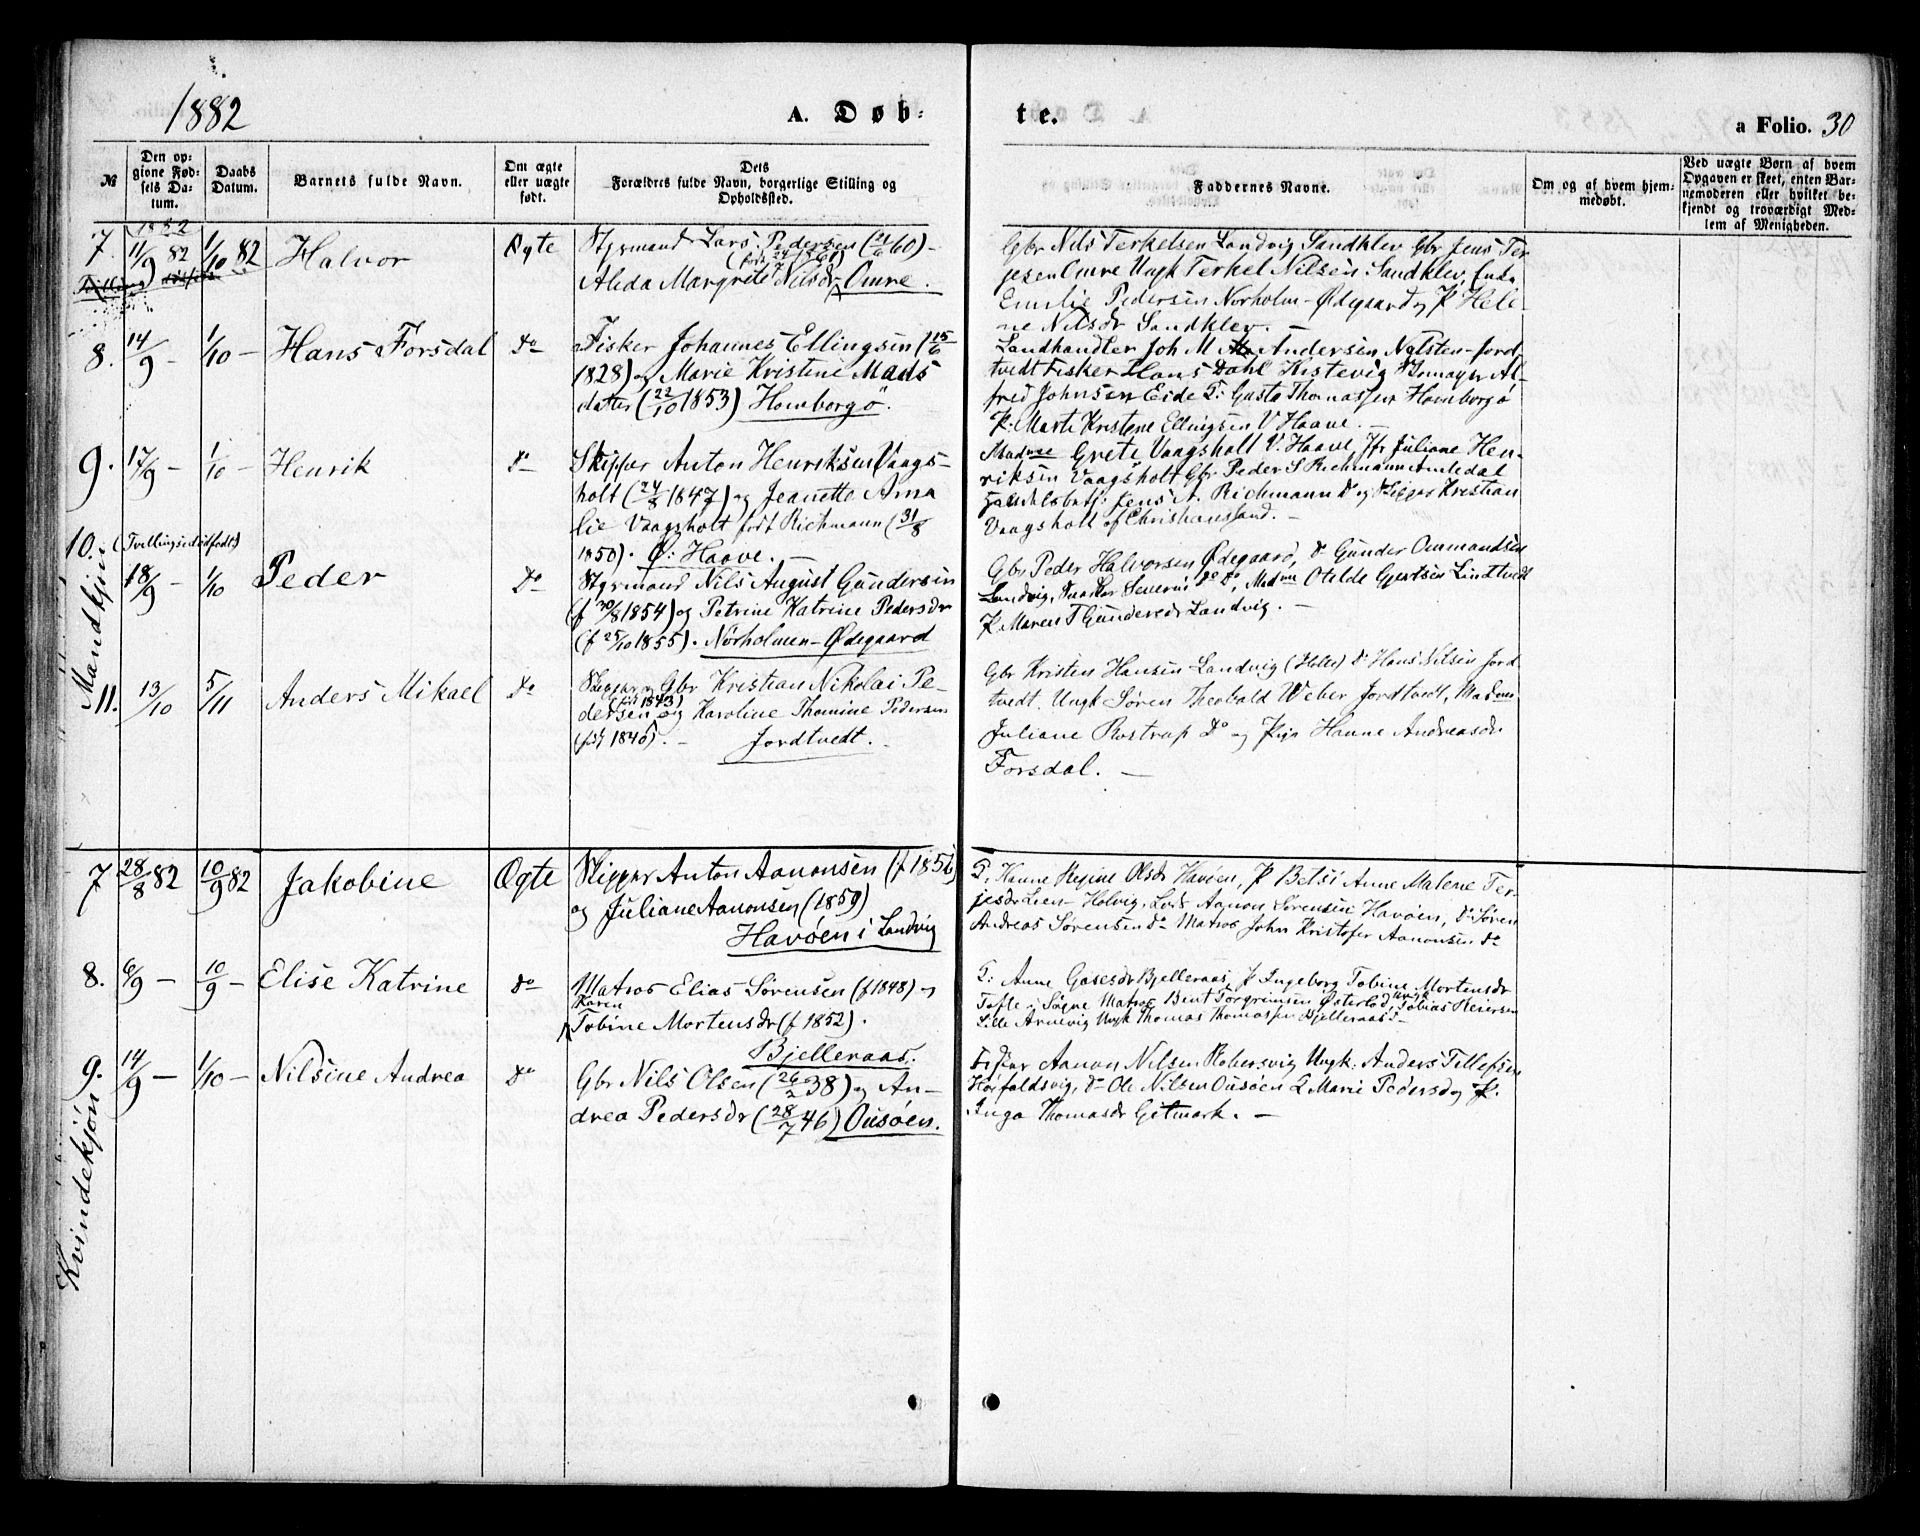 1882
A. Døb-
te.
a Folio. 30
№
Den op-
givne Fød-
sels Da-
tum.
Daabs
Datum.
Barnets fulde Navn.
Om ægte
eller uægte
født.
Dets
Forældres fulde Navn, borgerlige Stilling og
Opholdssted.
Faddernes Navne.
Om og af hvem hjem-
medøbt.
Ved uægte Børn af hvem
Opgaven er skeet, enten Bar-
nemoderen eller hvilket be-
kjendt og troværdigt Med-
lem af Menigheden.
Mandkjøn
7. 1882 11/9 82 1/10 82 Halvor Ægte
Styrmand Lars Pedersen (21/6 60) -
Alida Margrete Nilsdr Omre.
Gbr Nils Terkelsen Landvig Sandklev Gbr Jens Ter-
jesen Omre Ungk Terkel Nilsen Sandklev, Enke
Emilie Pedersen Norholm-Ødegaard og P. Hele-
ne Nilsdr Sandklev. -
8. 14/9 - 1/10 - Hans Forsdal Do
Fisker Johannes Ellingsen (15/6
1828) og Marie Kristine Mads
datter (22/10 1853) Homborgø.
Landhandler Joh M Andersen Nolsten-Jord
tvedt Fisker Hans Dahl Kistevig Al-
fred Johnsen Eide G: Gusta Thomassen Homborgø
P: Marte Kristene Ellingsen V Haave. -
9. 17/9 - 1/10 - Henrik Do
Skipper Anton Henriksen Vaags-
holt (24/8 1847) og Jeanette Ama
lie Vaagsholt født Richmann (31/8
1850). Ø: Haave. -
Madme Grete Vaagsholt V. Haave, Jfr Juliane Hen-
riksen Vaagsholt Gbr Peder S Richmann Amledal
Handelsbetj: Jens A. Richmann Do og Skipper Kristian
Vaagsholt af Christianssand. -
10. (Tvillingsødødfødt)
18/9 - 1/10 Peder Do
Styrmand Nils August Gundersen
(f 30/8 1854) og Petrine Katrine Pedersdr
(f 25/10 1855). Nørholmen-Ødegaard
Gbr Peder Halvorsen Ødegaard, Do Gunder Ommundsen
Landvig, Severin Do Do, Madme Otelde Gjertsen Lindtvedt
P. Maren T Gundersdr Landvig. -
11. 13/10 5/11 Anders Mikael Do
Skipper og Gbr Kristian Nikolai Pe-
dersen (født 1843) og Karoline Thomine Pedersen
(født 1840). - Jordtvedt. -
Gbr Kristen Hansen Landvig Do Hans Nilsen Jord
tvedt. Ungk Søren Theobald Weber Jordtvedt, Madme
Juliane Rostrup Do og Pige Hanne Andreasdr
Forsdal. -
Kvindekjøn
7 28/8 82 10/9 82 Jakobine Ægte
Skipper Anton Aanonsen (f 1856)
og Juliane Aanonsen (1859)
Havøen i Landvig
G. Hanne Regine Olsdr Havøen, P Betsi Anne Malene Ter-
jesdr Lien-Holvig, Lods Aanon Sørensen Havøen, Do Søren
Andreas Sørensen Do Matros John Kristofer Aanonsen Do
8. 6/9 - 10/9 - Elise Katrine Do
Matros Elias Sørensen (f 1848) og
Karen
Tobine Mortensdr (f 1852).
Bjelleraas.
G: Anne Gosesdr Bjelleraas, P Ingeborg Tobine Mortensdr
Tofte i Søgne Matros Bent Torgrimsen Østerlod, Ungk Tobias Reiersen
Lille Arnevig Ungk Thomas Thomassen Bjelleraas -
9. 14/9 - 1/10 - Nilsine Andrea Do
Gbr Nils Olsen (26/2 38) og An-
drea Pedersdr (28/7 46) Ousøen.
Fisker Aanon Nilsen Robersvig Ungk: Anders Tellefsen
Højfaldsvig, Do Ole Nilsen Ousøen G Marie Pedersdr og P.
Inga Thomasdr Gitmark. -